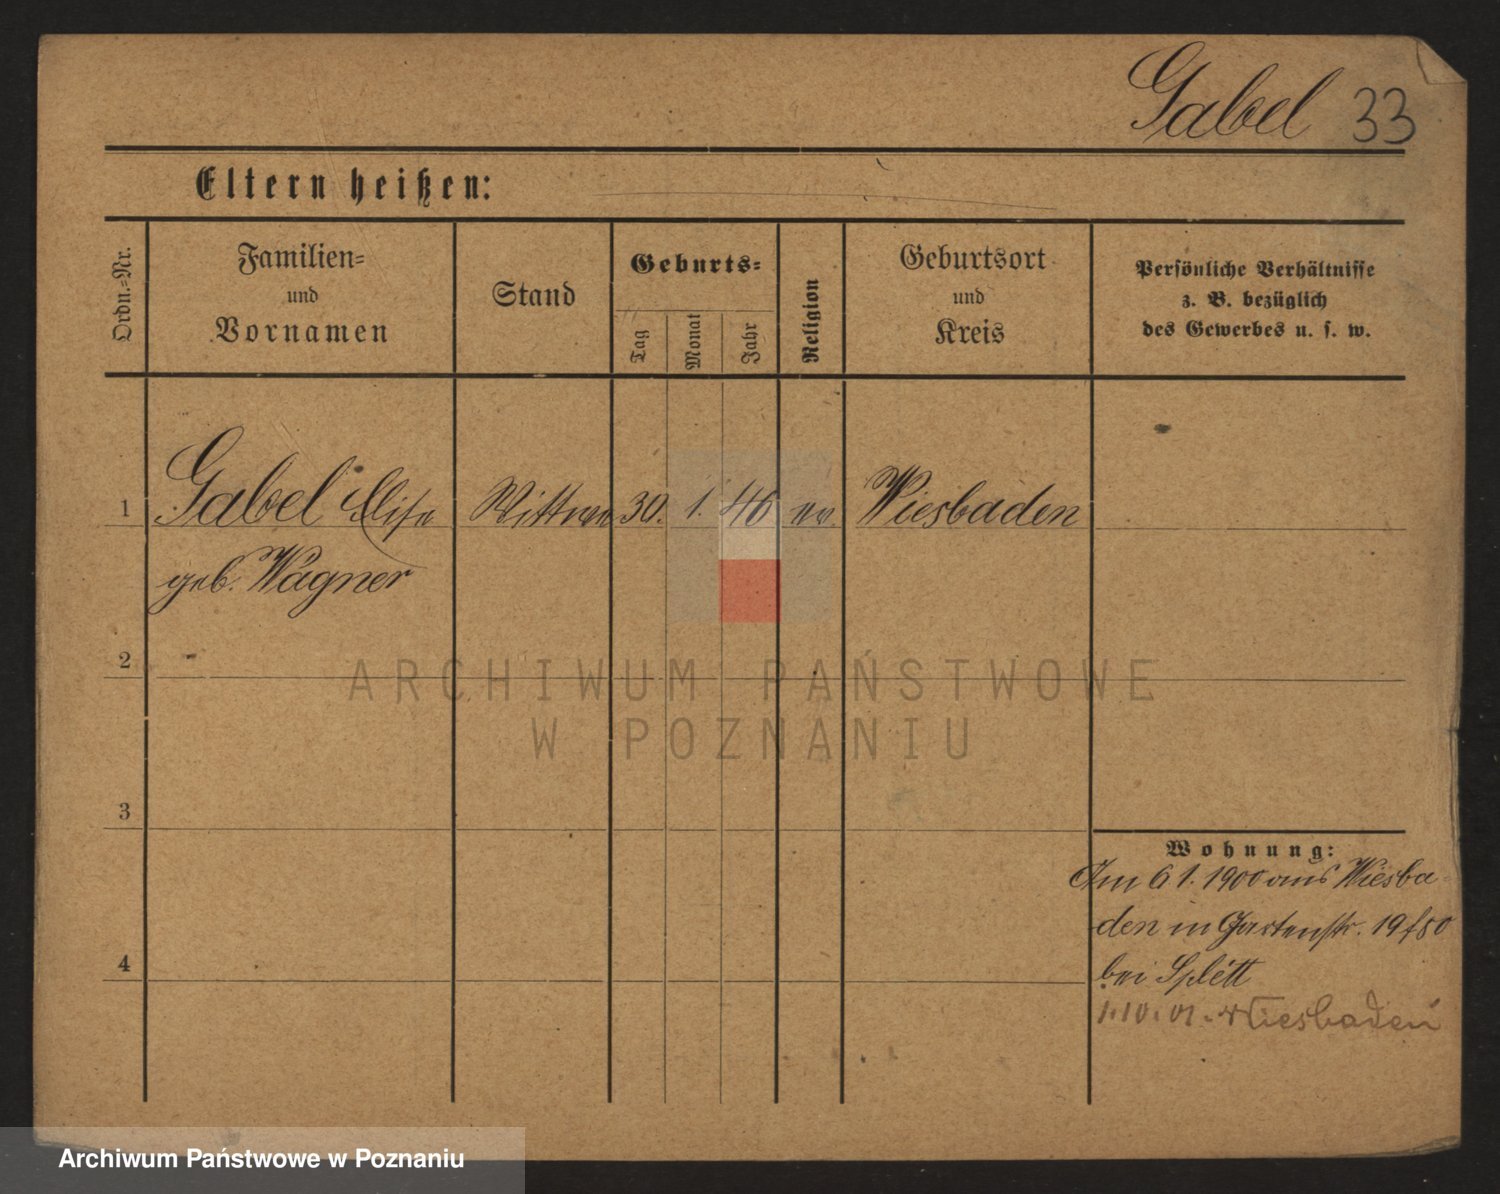 Gabel 33
Eltern heißen:
Ordn.-Nr.
Familien-
und
Vornamen
Stand
Geburts-
Tag
Monat
Jahr
Religion
Geburtsort
und
Kreis
Persönliche Verhältnisse
z. B. bezüglich
des Gewerbes u. s. w.
1 Gabel Elise Wittwe 30. 1. 46 ev. Wiesbaden
geb. Wagner
2
ARCHIWUM PAŃSTWOWE
W POZNANIU
3
Wohnung:
Am 6 1. 1900 aus Wiesba-
den in Gartenstr. 19
4
bei Splett
1.10.01. Wiesbaden
Archiwum Państwowe w Poznaniu